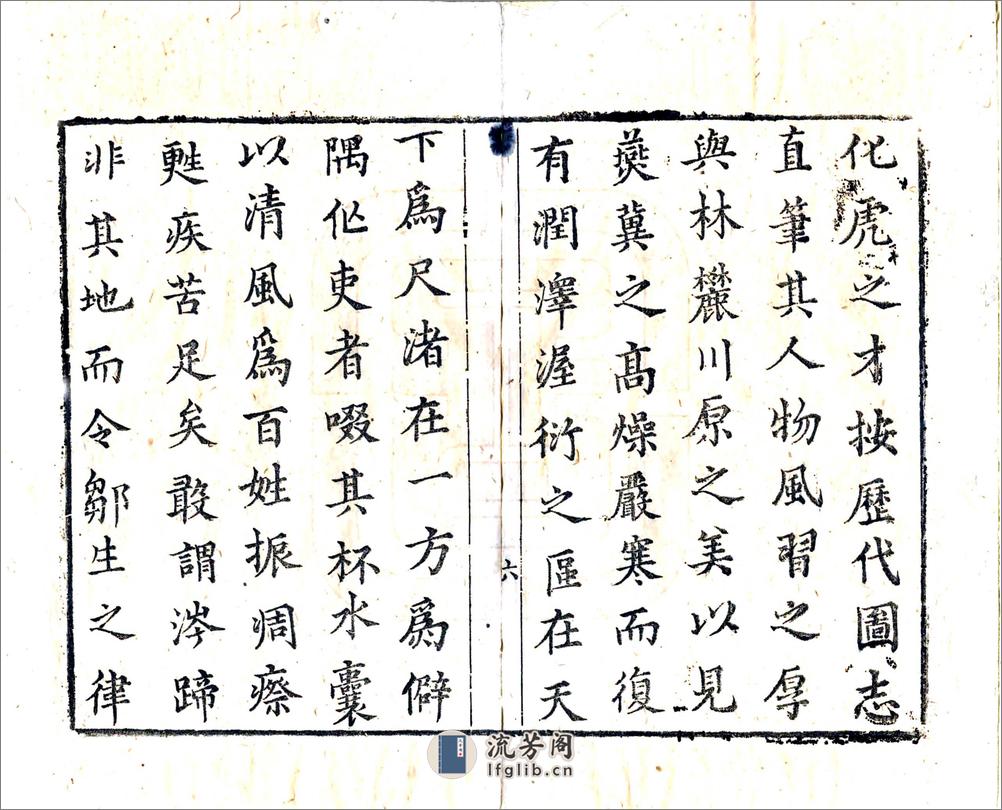 化虎之才按歷代圖志
直筆其人物風習之厚
與林麓川原之美以見
燕冀之高燥嚴寒而復
有潤澤渥衍之區在天
六
下爲尺渚在一方爲僻
隅仫吏者啜其杯水囊
以清風爲百姓振凋瘵
甦疾苦足矣敢謂涔蹄
非其地而令鄒生之律
流芳阁
lfglib.cn